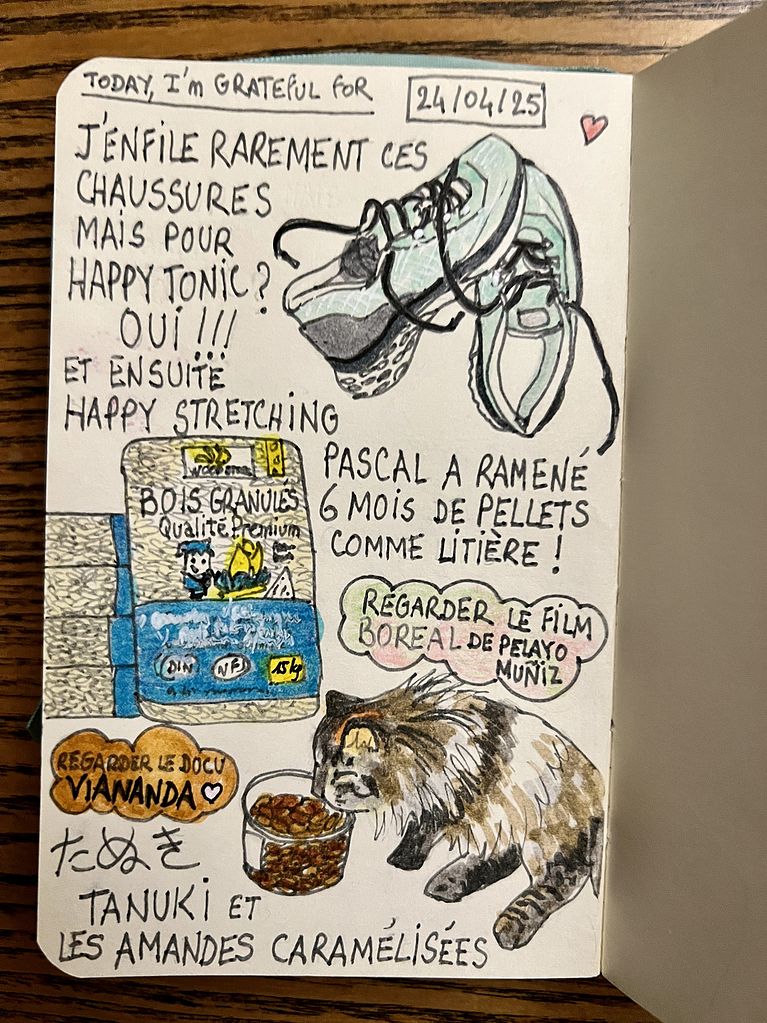 TODAY, I'm GRATEFUL FOR
24/04/25
J'ENFILE RAREMENT CES
CHAUSSURES
MAIS POUR
HAPPY TONIC ?
OUI !!!
ET ENSUITE
HAPPY STRETCHING
BOIS GRANULÉS
Qualité Premium
DIN NF 15kg
PASCAL A RAMENÉ
6 MOIS DE PELLETS
COMME LITIÈRE !
REGARDER LE FILM
BOREAL DE PELAYO
MUÑIZ
REGARDER LE DOCU
VIANANDA
たぬき
TANUKI ET
LES AMANDES CARAMÉLISÉES